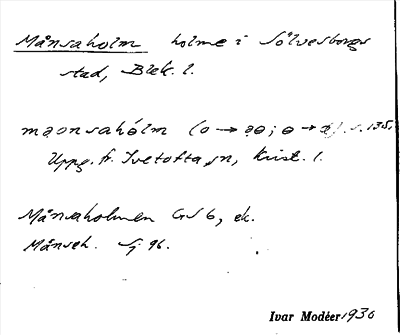 Månsaholm holme i Sölvesborgs
stad, Blek. l.
maonsahólm (o → ; → ). s. 135.
Uppg. fr. Ivetofta sn, Krist. l.
Månsaholmen GS6, ek.
Månsah. Gj 96.
Ivar Modéer 1930